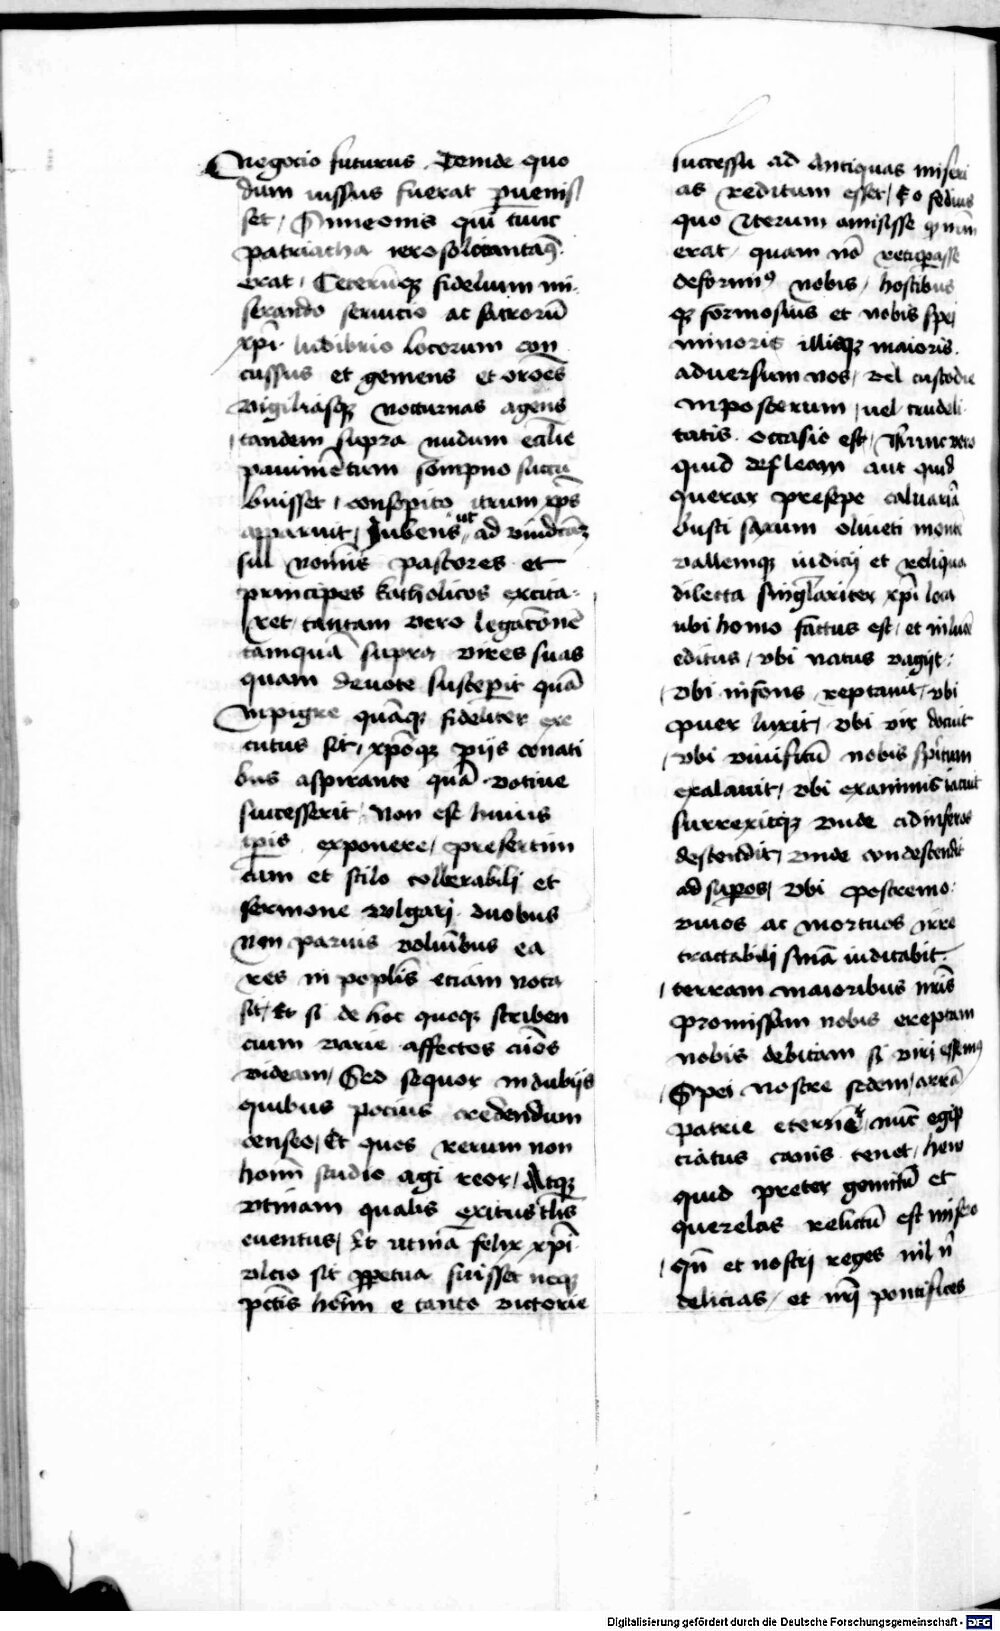 Negocio futurus Deinde quo
dum iussus fuerat ꝑuenis
set / Simeonis qui tunc
patriarcha
erat / Ceterūqꝫ fidelium mi
serando seruicio ac sacrorū
xp̄i ludibrio locorum con
cussus et gemens et orōēs
vigiliasqꝫ nocturnas agens
tandem supra nudum ecclīe
pauimētum sompno succu
buisset / consopito itrum xp̄s
apparuit / Jubens ut ad
sui nomīs pastores et
principes katholicos excita
ret / tantam vero legacōnē
tamquā supra vires suas
quam deuote susceperit quā
impigre quāqꝫ fideliter exe
cutus sit / xp̄oqꝫ pijs conati
bus aspirante quā votiue
successerit / Non est huius
tp̄is exponere / presertim
cum et stilo tollerabili et
sermone vulgari duobus
non paruis volūībus ea
res in poplīs eciam nota
sit / Et si de hoc quoqꝫ scriben
cium varie affectos aīos
videam / Sed sequor in dubijs
quibus pocius credendum
censeo / Et quos rerum non
hoīm studio agi reor / Atqꝫ
vtinam qualis exitus tlis
euentus / Et utinā felix xp̄i
vlcio sit ꝑpetua fuisset neqꝫ
pctīs hoīm e tanto victorie
successu ad Antiquas miseri
as reditum esset / Eo fedius
quo iterum amisisse
erat quam nō recuꝑasse
deformiꝰ nobis / hostibus
qꝫ formosius et nobis spei
minoris illisqꝫ maioris
aduersum nos / vel custodie
in posterum / uel crudeli
tatis occasio est / Nunc vero
quid defleam aut quid
querar presepe caluariā
busti saxum oliueti montē
vallemqꝫ iudicij et reliqua
dilecta singlariter xp̄i loca
ubi homo factus est / et in lucē
editus / vbi natus vagijt
vbi infans reptauit / vbi
puer lusit / vbi vir docuit
vbi viuificū nobis spiritum
exalauit / vbi exanimis iacuit
surrexitqꝫ vnde ad inferos
descendit / vnde condescendit
ad suꝑos / vbi postremo
viuos ac mortuos irre
tractabili snīā iudicabit
terram maioribus nr̄is
promissam nobis ereptam
nobis debitam si viri essemꝰ
Spei nostre sedem / arrā
patrie eterne / nūc egip
ciatus canis tenet / heu
quid preter gemitū et
querelas relictū est misero
qn̄ et nostri reges nil n̄
delicias / et nr̄i pontifices
Digitalisierung gefördert durch die Deutsche Forschungsgemeinschaft - DFG